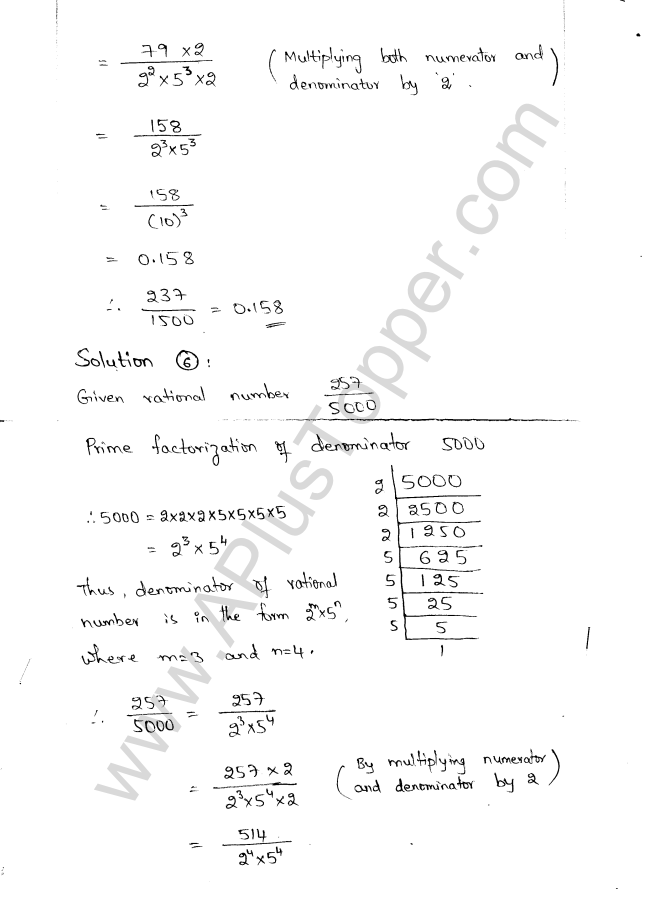 = 79 × 2 / 2² × 5³ × 2 (Multiplying both numerator and denominator by '2'.)
= 158 / 2³ × 5³
= 158 / (10)³
= 0.158
∴ 237 / 1500 = 0.158
Solution ⑥ :
Given rational number 257 / 5000
Prime factorization of denominator 5000
2 | 5000
2 | 2500
2 | 1250
5 | 625
5 | 125
5 | 25
5 | 5
1
∴ 5000 = 2×2×2×5×5×5×5
= 2³ × 5⁴
Thus, denominator of rational
number is in the form 2ᵐ×5ⁿ,
where m=3 and n=4.
∴ 257 / 5000 = 257 / 2³×5⁴
= 257 × 2 / 2³×5⁴×2 (By multiplying numerator and denominator by 2)
= 514 / 2⁴×5⁴
www.APlusTopper.com